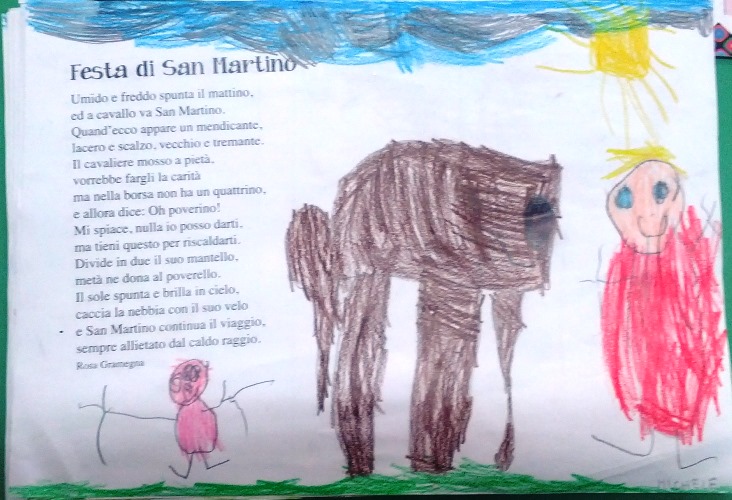 Festa di San Martino
Umido e freddo spunta il mattino,
ed a cavallo va San Martino.
Quand'ecco appare un mendicante,
lacero e scalzo, vecchio e tremante.
Il cavaliere mosso a pietà,
vorrebbe fargli la carità
ma nella borsa non ha un quattrino,
e allora dice: Oh poverino!
Mi spiace, nulla io posso darti,
ma tieni questo per riscaldarti.
Divide in due il suo mantello,
metà ne dona al poverello.
Il sole spunta e brilla in cielo,
caccia la nebbia con il suo velo
e San Martino continua il viaggio,
sempre allietato dal caldo raggio.
Rosa Gramegna
MICHELE